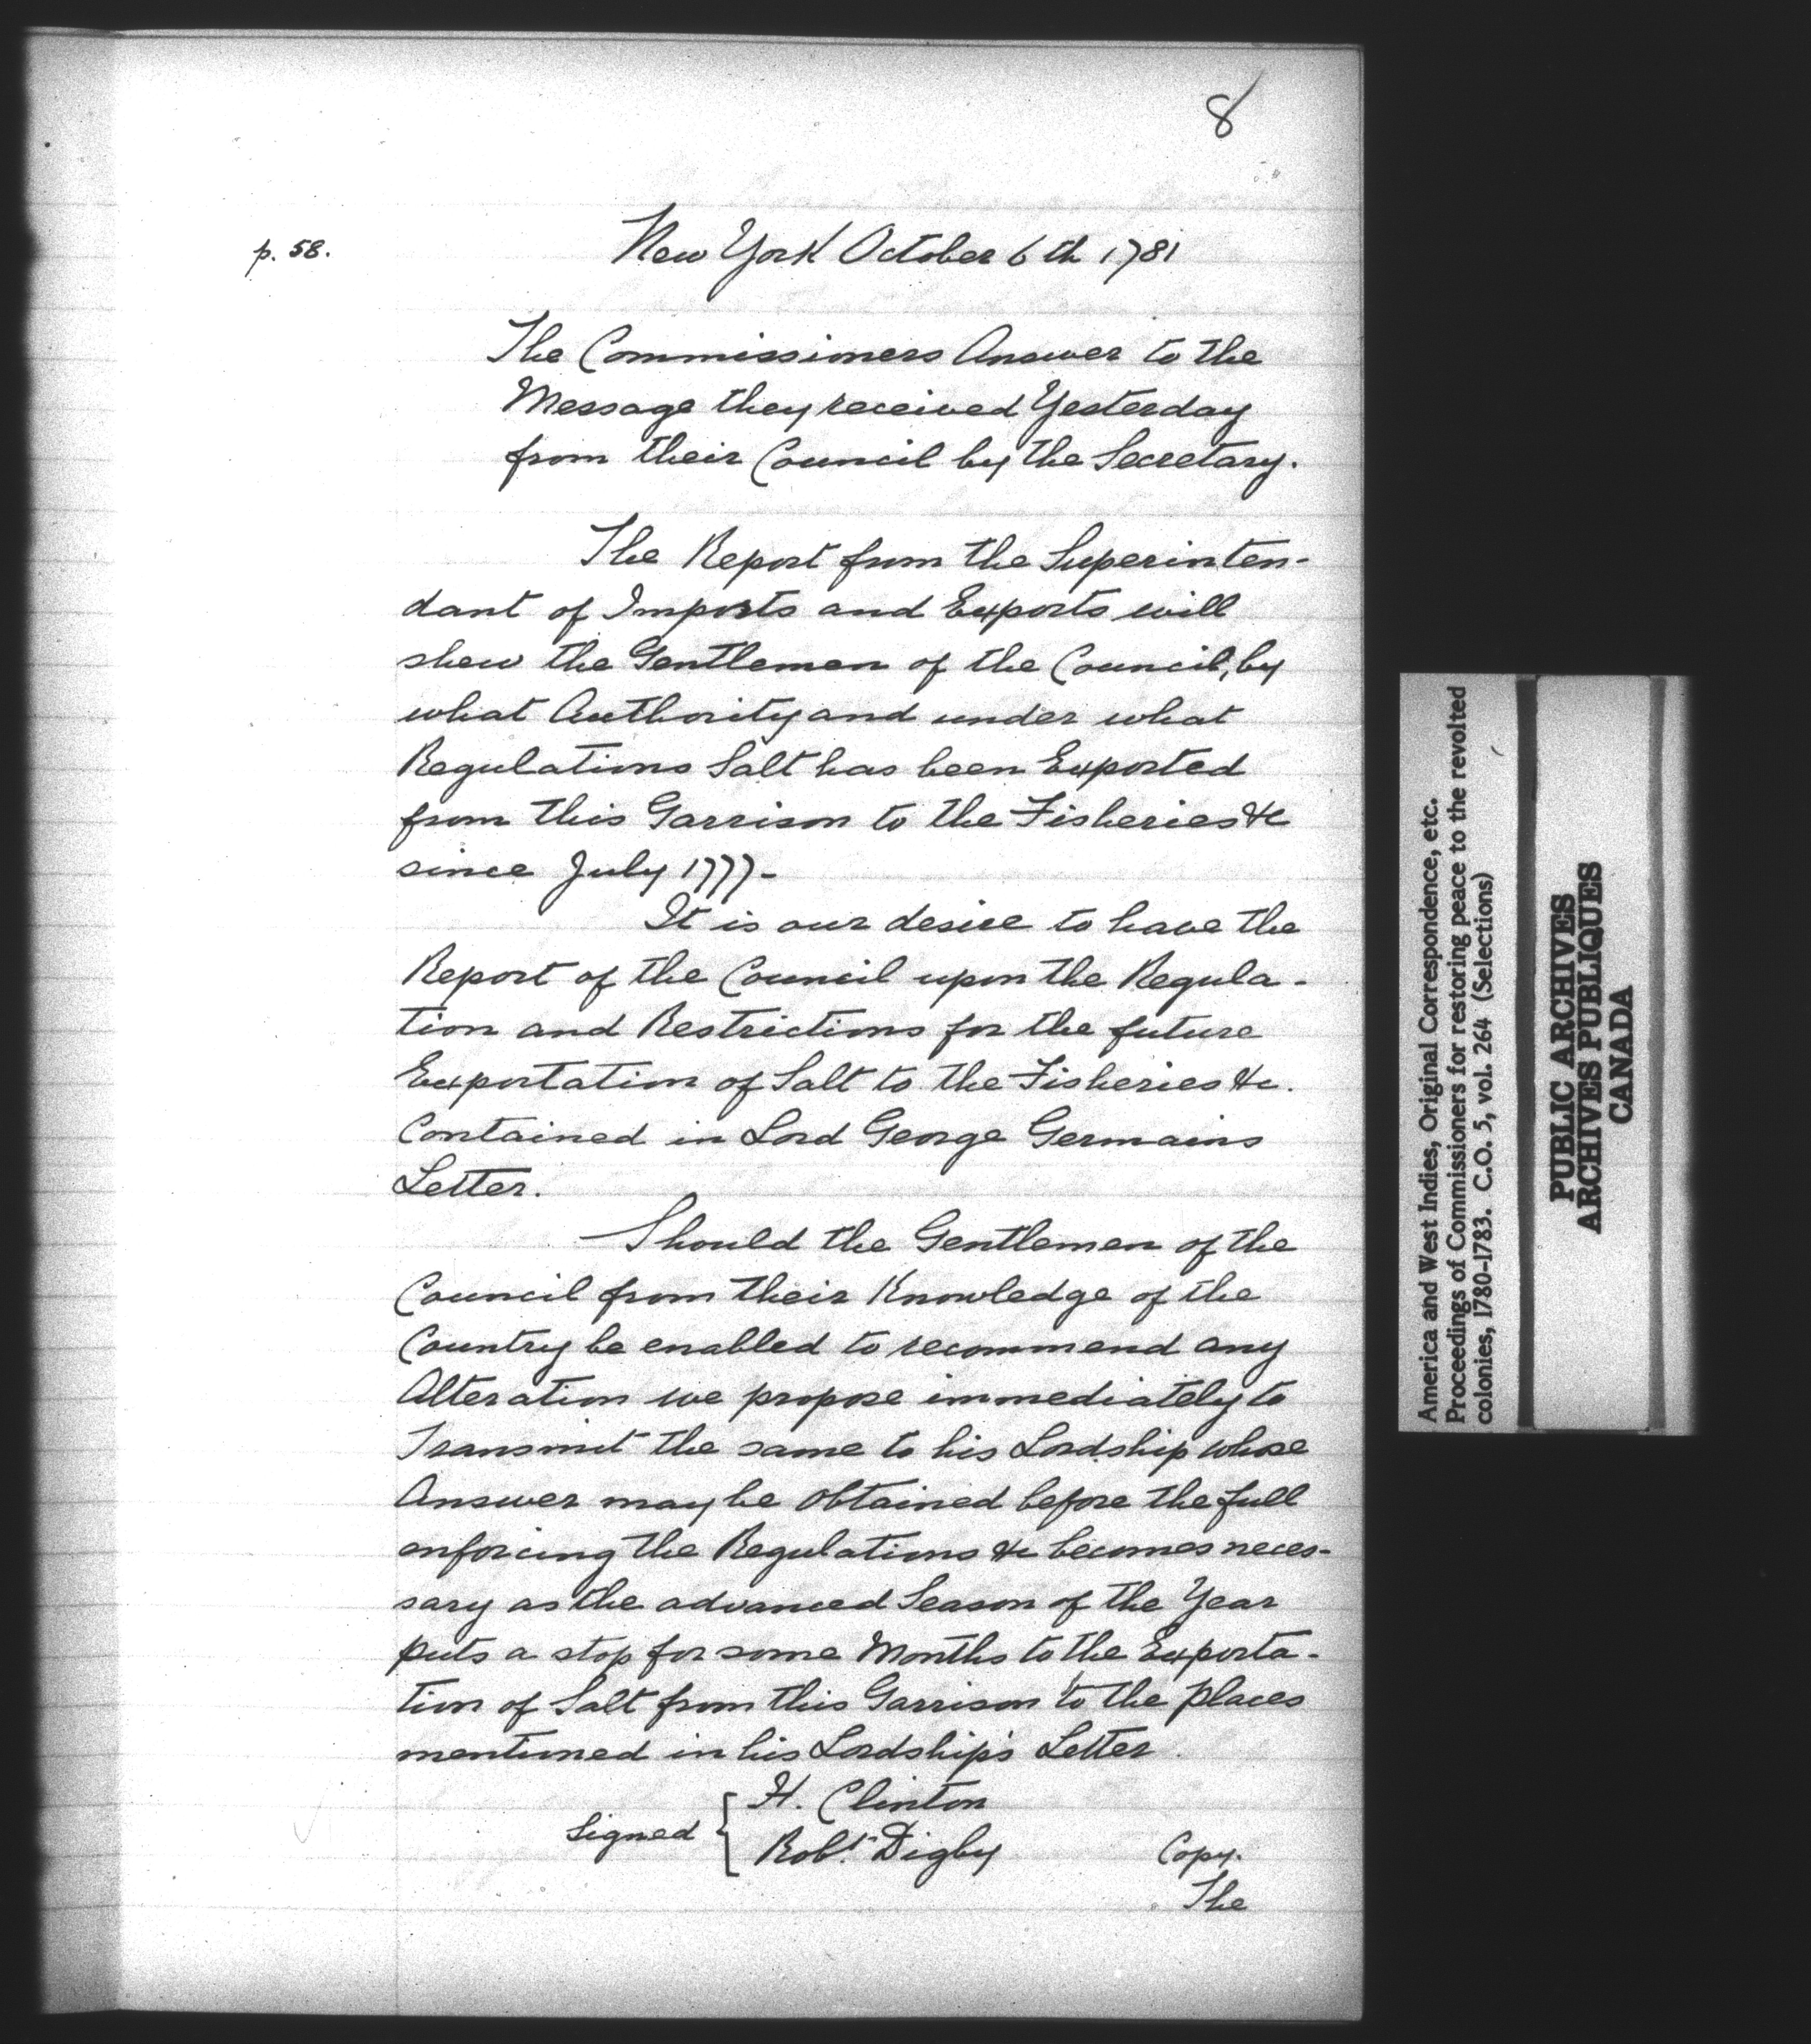 8
p. 58.
New York October 6th 1781
The Commissioners Answer to the
Message they received Yesterday
from their Council by the Secretary.
The Report from the Superinten-
dant of Imports and Exports will
shew the Gentlemen of the Council, by
what Authority and under what
Regulations Salt has been Exported
from this Garrison to the Fisheries &c
since July 1777-
It is our desire to have the
Report of the Council upon the Regula-
tion and Restrictions for the future
Exportation of Salt to the Fisheries &c.
Contained in Lord George Germains
Letter.
Should the Gentlemen of the
Council from their Knowledge of the
Country be enabled to recommend any
Alteration we propose immediately to
Transmit the same to his Lordship whose
Answer may be obtained before the full
enforcing the Regulations &c becomes neces-
sary as the advanced Season of the Year
puts a stop for some Months to the Exporta-
tion of Salt from this Garrison to the places
mentioned in his Lordship's Letter.
Signed { H. Clinton
Robt. Digby
Copy.
The
America and West Indies, Original Correspondence, etc.
Proceedings of Commissioners for restoring peace to the revolted
colonies, 1780-1783. C.O. 5, vol. 264 (Selections)
PUBLIC ARCHIVES
ARCHIVES PUBLIQUES
CANADA